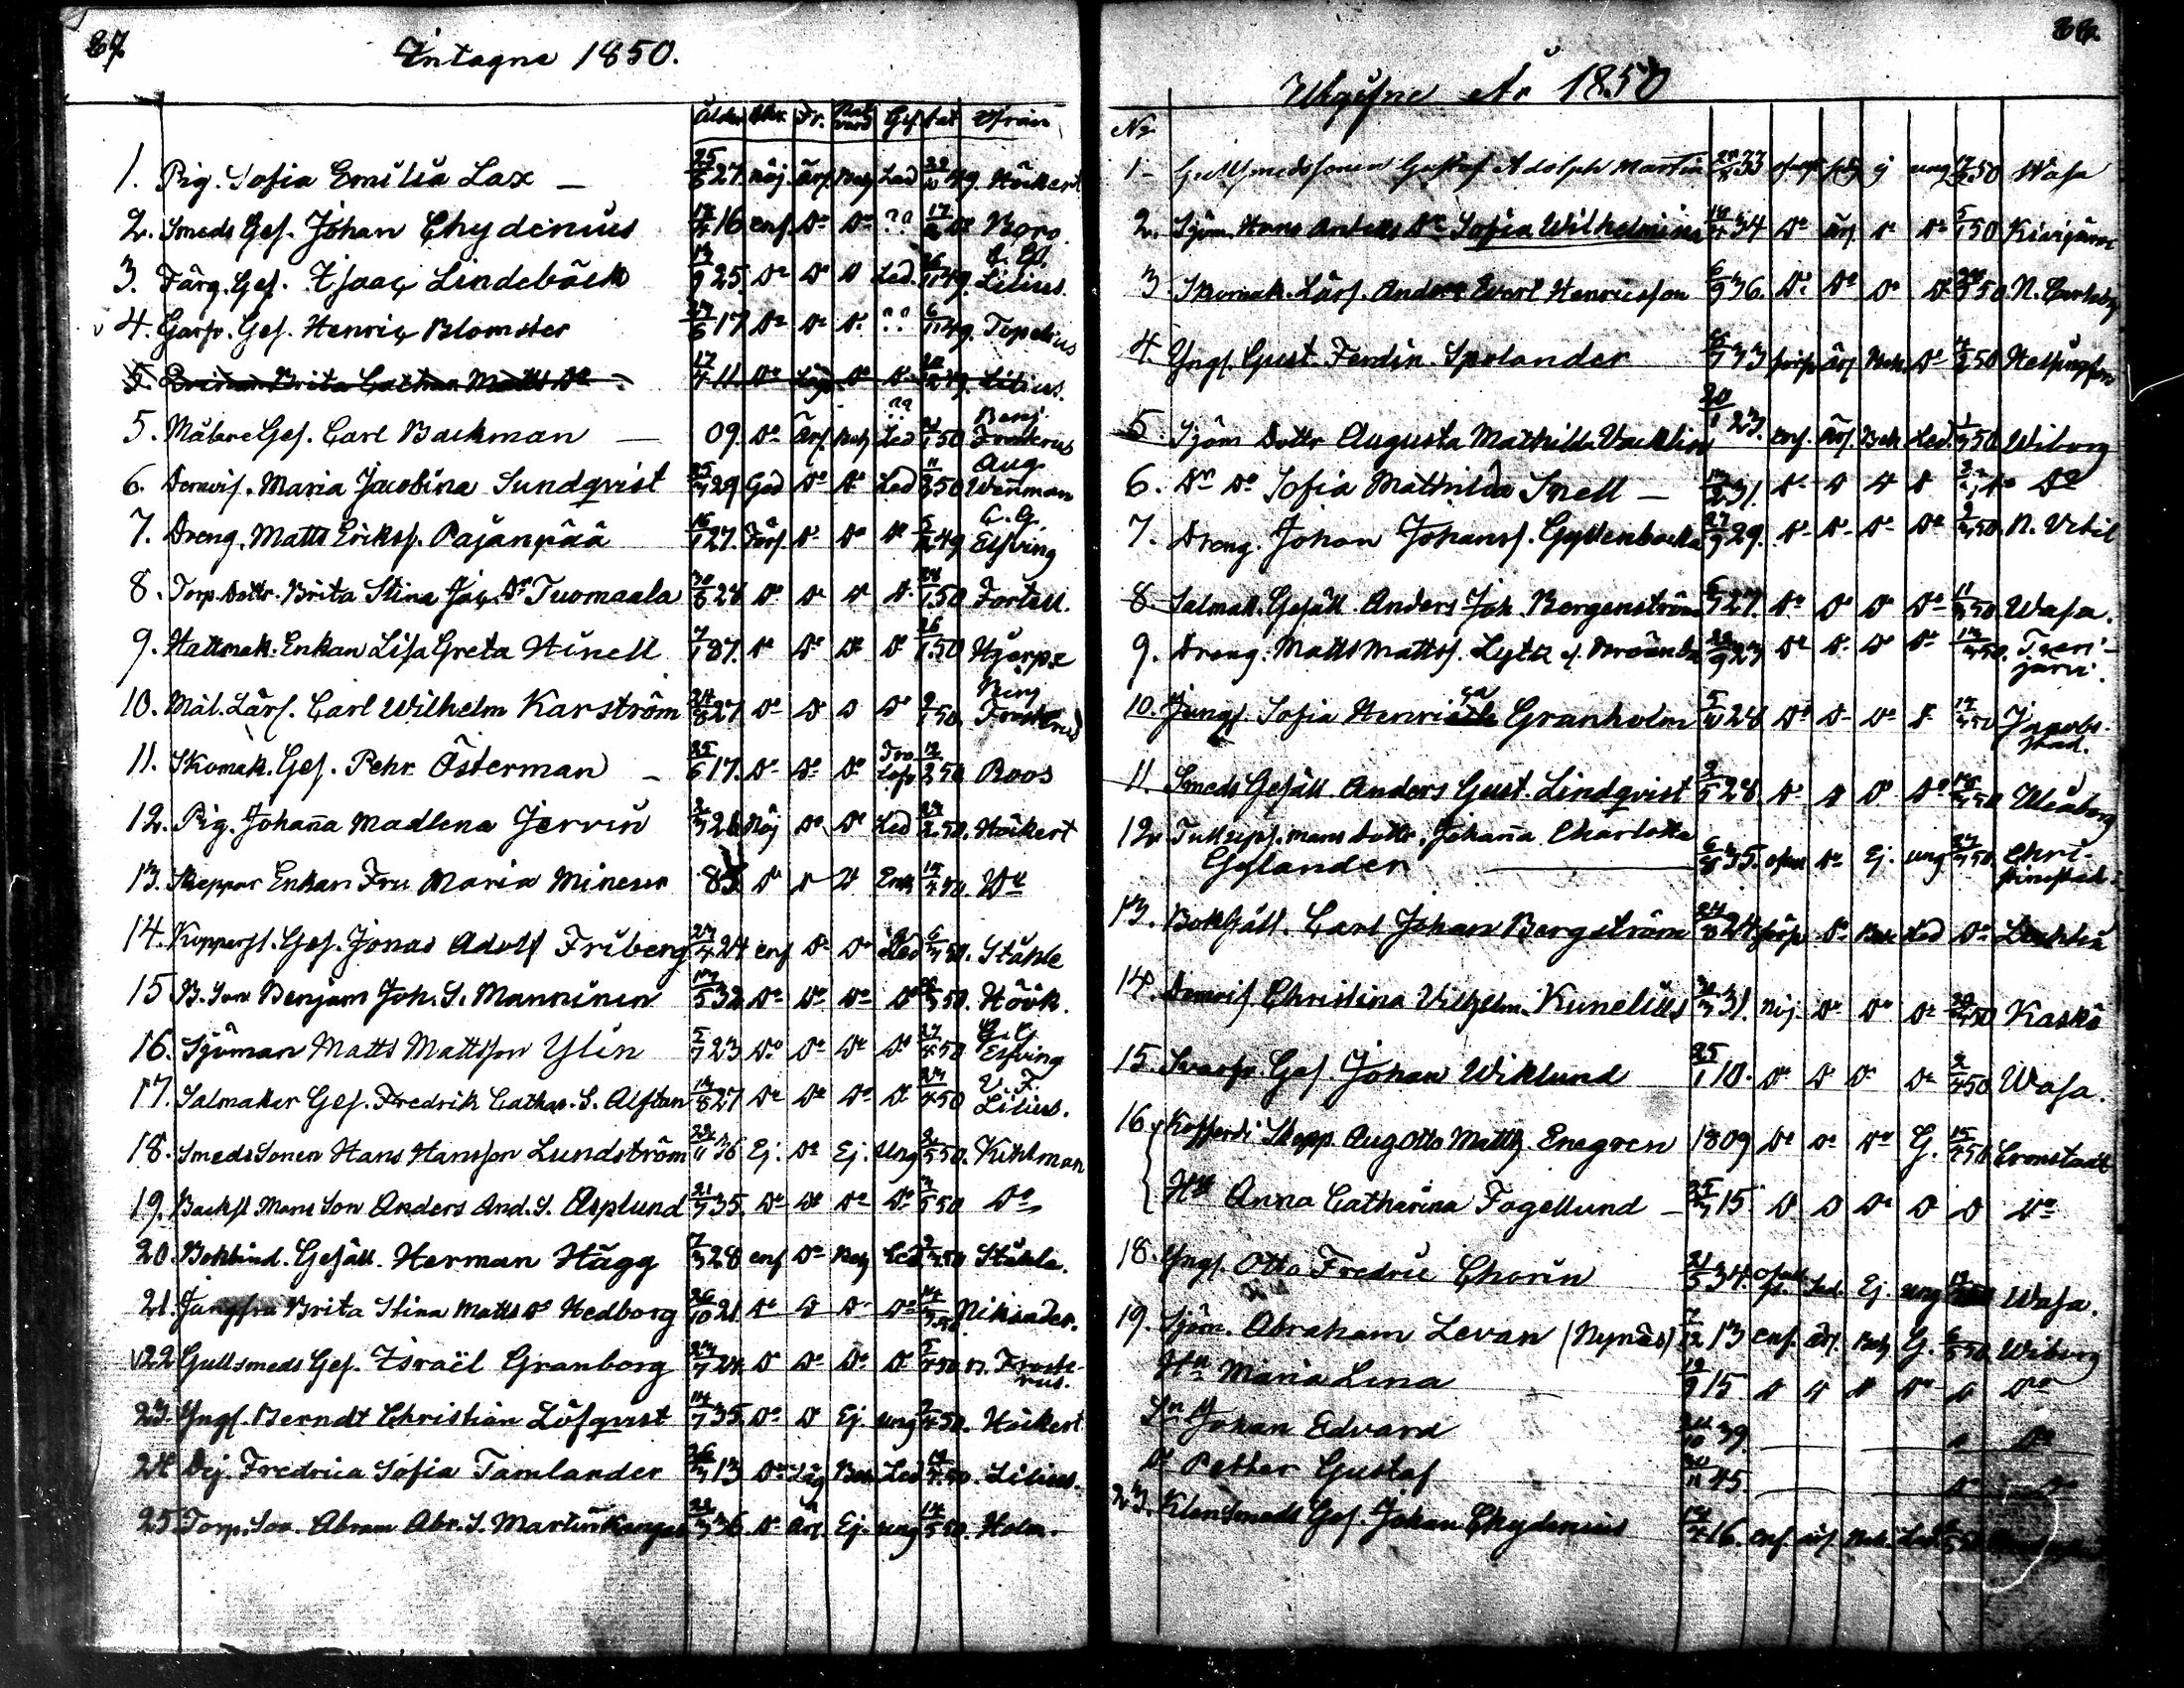 87
Intagne 1850.
Ålder Chr. Fr. Natvard Gef. dat Ifrån
1. Pig. Sofia Emilia Lax — 25/6 27. nöj. ärf. Beg Led 22/10 49. Häkert
2. Smeds Gef. Johan Chydenius 17/4 16 enf. Do Do ?? 17/12 Do Roos.
3. Färg. Gef. Isaac Lindebäck 13/9 25. Do Do D Led. 26/11 49. Lilius.
4. Garfv. Gef. Henric Blomster 27/6 17 Do Do Do ?? 6/11 49. Topelius
5. Brita Cathar. Matts Dr 17/4 11. Do Do D. Lilius.
5. Målare Gef. Carl Backman — 09. Do Ärf. Beg Led 1 50 Benj. Frosterus
6. Demoif. Maria Jacobina Sundqvist 25/3 29 God Do Do Led 11/3 50 Aug. Wenman
7. Dreng. Matts Eriksf. Pajanpää 16/1 27. Förf. Do Do D 5/12 49 C. G. Elfving
8. Torp. Dottr. Brita Stina Jac. Dr Tuomaala 30/8 28 Do D D D. 28/1 50 Fortell.
9. Hattmak. Enkan Lisa Greta Hinell 7/1 87. D Do Do D 26/1 50 Hjerpe
10. Mål. Lärf. Carl Wilhelm Karström 24/8 27 Do D D Do 2/1 50. Benj Frosterus
11. Skomak. Gef. Pehr Österman — 25/6 17. Do Do Do 12/2 50 Roos
12. Pig. Johana Madlena Jervin 2/3 26 Nöj Do Do Led 23/2 50. Häkert
13. Skeppar Enkan Fru Maria Mineur D D D Enk 50. Do
14. Kopparsl. Gef. Jonas Adolf Friberg 27/4 24 enf Do Do Led 6/3 50. Ståhle
15 B. Son Benjam Joh. S. Manninen 17/5 32 Do Do Do Do 3 50. Höök.
16. Sjöman Matts Mattsson Ylin 5/7 23 Do Do Do Do 27/4 50 C. G. Elfving
17. Salmakar Gef. Fredrik Cathar. S. Alftan 13/8 27 Do Do Do D 27/4 50 L. F. Lilius.
18. Smeds Sonen Hans Hansson Lundström 22/11 36 Ej. Do Ej. Ung 2/5 50. Kihlman
19. Backst. Mans Son Anders And. S. Asplund 21/7 35. Do Do Do Do 3/5 50 Do
20. Bokbind. Gefäll. Herman Hägg 7/3 28 enf Do Beg Led 2/3 50. Ståhle.
21. Jungfru Brita Stina Matts Do Hedborg 26/10 21 Do D Do Do 14/3 50 Niksander.
22 Gullsmeds Gef. Israël Granborg 27/7 24. D Do Do D 5/4 50 B. Frosterus.
23. Yngl. Berndt Christian Löfqvist 14/7 35. Do D Ej. ung 2/4 50. Häkert
24 Dej. Fredrica Sofia Tamlander 26/3 13 Do Låg Beg Led 50. Lilius.
25. Torp. Son. Abram Abr. S. Martinkangas 22/3 36 Do Ärf. Ej. ung 14/5 50. Holm.
88.
Utgifne År 1850
No
1- Gullsmedssonen Gustaf Adolph Martin 33 ung 50 Wasa
2. Sjöm. Hans Anders Dr Sofia Wilhelmina 34 Do ärf. D Do 5/1 50 Kivijärvi
3 Skomak. Lärf. Anders Evert Henricsson 6/9 36. Do Do Do D 50. N. Carleby
4. Yngl. Gust. Ferdin. Spolander 33 försv ärf. Beh. Do 50 Helsingfors
5 Sjöm Dottr Augusta Mathilda Wacklin 20/1 23. enf. Ärf. Beh Led. 50 Wiborg
6. Dr Do Sofia Mathilda Snell — 31. Do D D D Do
7. Dreng. Johan Johansf. Gyllenbacka 27/9 29. Do Do Do Do 50. N. Vetil
8. Salmak. Gefäll. Anders Joh. Bergenström 6/7 27. Do Do D Do 11/3 50. Wasa.
9. Dreng. Matts Mattsf. Lytz 22/9 23 Do D. Do Do 50. Tverijärvi.
10. Jungf. Sofia Henrica Granholm 5/10 28 Do D Do D 50 Jacobstad.
11. Smeds Gefäll. Anders Gust. Lindqvist 2/5 28. Do D D Do 50 Uleåborg
12. Tulluppf. mans dottr. Johana Charlotta
Gylander — 35. Do Ej. ung 27/3 50. Christinestad
13. Bokhåll. Carl Johan Bergström 24. Do Beh Led Do
14. Demoif. Christina Vilhelm. Kunelius 31. nöj. Do Do Do 50 Kaskö
15. Svarfv. Gef. Johan Wiklund 25/1 10. Do D D Do 2/4 50 Wasa.
16. Kofferdi Skepp. Aug Otto Matth. Enegren 1809 Do Do Do G. 15/4 50 Cronstadt
Hu Anna Catharina Fagellund — 25/3 15 D D Do D D Do
18. Yngl. Otto Fredric Chorin 21/5 34. Ej. ung Wasa.
19. Sjöm. Abraham Levan (Nynäs) 7/12 13 enf. ärf. Beg G. 6/5 50. Wiborg
Hu Maria Lena 12/9 15 D D D Do D Do
Sn Johan Edvard 39. — D Do
Do Petter Gustaf 45. — Do Do
23. Klensmeds Gef. Johan Chydenius 17/4 16. enf. ärf. Beh. Led 50